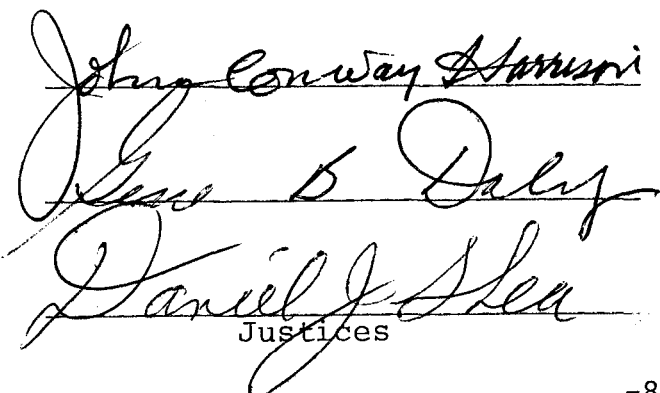 John Conway Harrison
Gene B Daly
Daniel J. Shea
Justices
-8